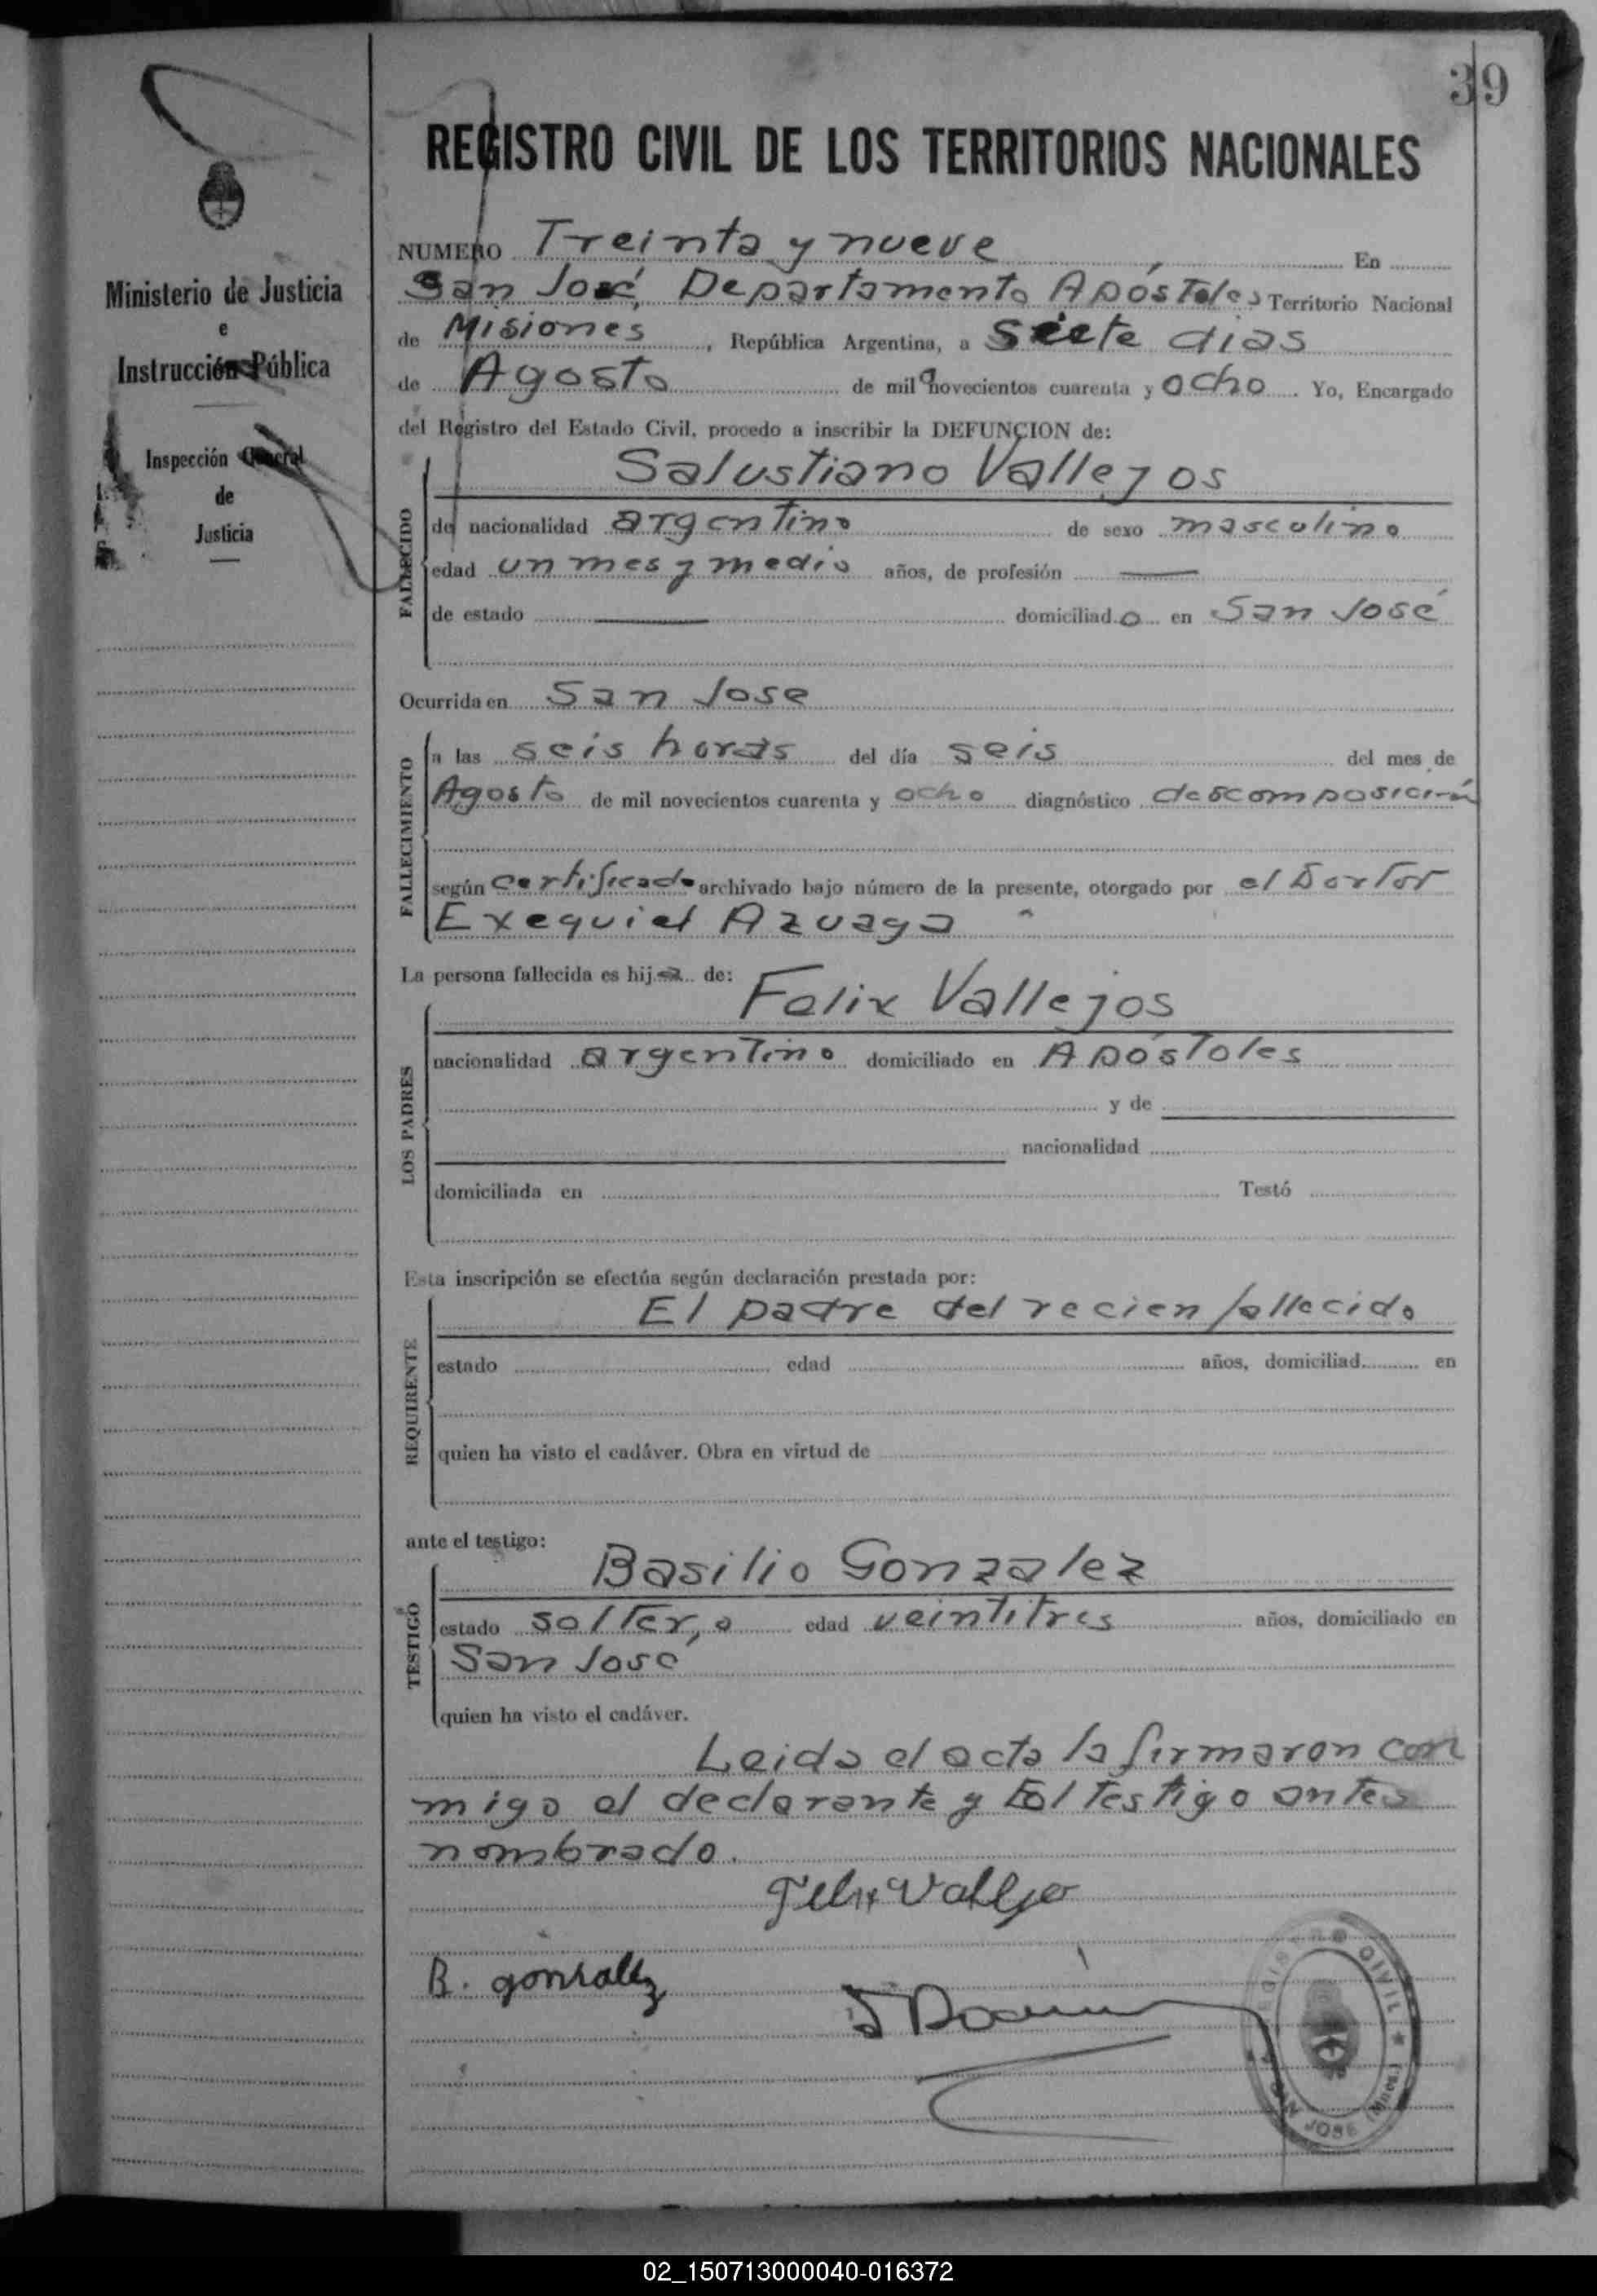 39
REGISTRO CIVIL DE LOS TERRITORIOS NACIONALES
Ministerio de Justicia
e
Instrucción Pública
Inspección General
de
Justicia
NUMERO Treinta y nueve En
San José, Departamento Apóstoles Territorio Nacional
de Misiones, República Argentina, a siete dias
de Agosto de mil novecientos cuarenta y ocho. Yo, Encargado
del Registro del Estado Civil, procedo a inscribir la DEFUNCION de:
FALLECIDO
Salustiano Vallejos
de nacionalidad argentino de sexo masculino
edad un mes y medio años, de profesión
de estado domiciliado en San José
Ocurrida en San Jose
FALLECIMIENTO
a las seis horas del día seis del mes de
Agosto de mil novecientos cuarenta y ocho diagnóstico descomposición
según certificado archivado bajo número de la presente, otorgado por el Doctor
Exequiel Azuaga
La persona fallecida es hij de:
LOS PADRES
Felix Vallejos
nacionalidad argentino domiciliado en Apóstoles
y de
nacionalidad
domiciliada en Testó
Esta inscripción se efectúa según declaración prestada por:
REQUIRENTE
El padre del recien fallecido
estado edad años, domiciliad en
quien ha visto el cadáver. Obra en virtud de
ante el testigo:
TESTIGO
Basilio Gonzalez
estado soltero edad veintitres años, domiciliado en
San José
quien ha visto el cadáver.
Leida el acta la firmaron con
migo el declarante y el testigo antes
nombrado.
Felix Vallejo
B. gonzallz
REGISTRO CIVIL ★ SAN JOSE (Mnes.)
02_150713000040-016372